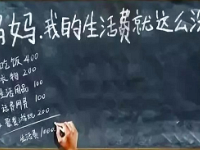 妈妈.我的生活费就这么没
吃饭 400
衣物 200
生活用品 100
话费网费 100
聚餐 200
生活费1000